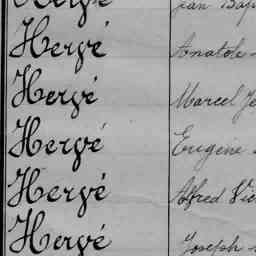 Hervé Jean Bap
Hervé Anatole
Hervé Marcel Je
Hervé Eugène
Hervé Alfred Vic
Hervé Joseph